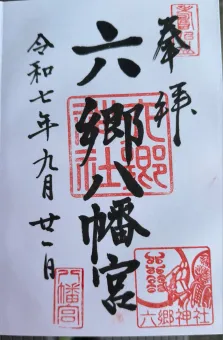 奉拝
六郷八幡宮
令和七年九月廿一日
六郷神社
八幡宮
六郷神社